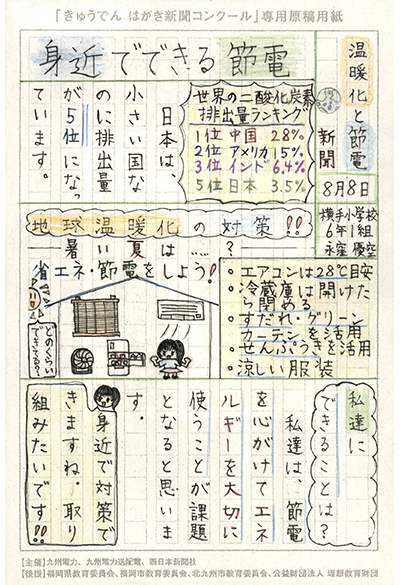 「きゅうでん はがき新聞コンクール」専用原稿用紙
温暖化と節電
新聞
8月8日
横手小学校
6年1組
永窪 優空
身近でできる節電
世界の二酸化炭素
排出量ランキング
1位 中国 28%
2位 アメリカ 15%
3位 インド 6.4%
5位 日本 3.5%
日本は、
小さい国な
のに排出量
が5位になっ
ています。
地球温暖化の対策!!
暑い夏は……?
省エネ・節電をしよう!
・エアコンは28℃目安
・冷蔵庫は開けた
ら閉める
・すだれ・グリーン
カーテンを活用
・せんぷうきを活用
・涼しい服装
どのくらい
できてる?
私達に
できることは?
私達は、節電
を心がけてエネ
ルギーを大切に
使うことが課題
となると思いま
す。
身近で対策で
きますね。取り
組みたいです!!
【主催】九州電力、九州電力送配電、西日本新聞社
【後援】福岡県教育委員会、福岡市教育委員会、北九州市教育委員会、公益財団法人 理郡教育財団